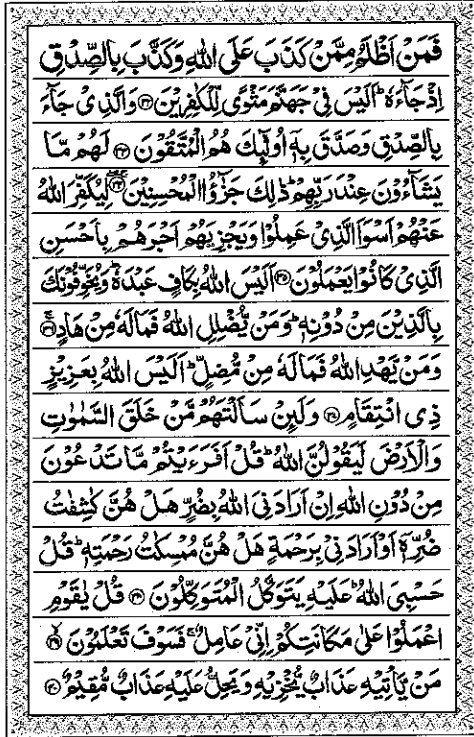 فَمَنْ اَظْلَمُ مِمَّنْ كَذَبَ عَلَى اللهِ وَكَذَّبَ بِالصِّدْقِ
اِذْ جَآءَهٗ ؕ اَلَيْسَ فِيْ جَهَنَّمَ مَثْوًى لِّلْكٰفِرِيْنَ ﴿۳۲﴾ وَالَّذِيْ جَآءَ
بِالصِّدْقِ وَصَدَّقَ بِهٖٓ اُولٰٓئِكَ هُمُ الْمُتَّقُوْنَ ﴿۳۳﴾ لَهُمْ مَّا
يَشَآءُوْنَ عِنْدَ رَبِّهِمْ ؕ ذٰلِكَ جَزٰٓؤُا الْمُحْسِنِيْنَ ﴿۳۴﴾ لِيُكَفِّرَ اللهُ
عَنْهُمْ اَسْوَاَ الَّذِيْ عَمِلُوْا وَيَجْزِيَهُمْ اَجْرَهُمْ بِاَحْسَنِ
الَّذِيْ كَانُوْا يَعْمَلُوْنَ ﴿۳۵﴾ اَلَيْسَ اللهُ بِكَافٍ عَبْدَهٗ ؕ وَيُخَوِّفُوْنَكَ
بِالَّذِيْنَ مِنْ دُوْنِهٖ ؕ وَمَنْ يُّضْلِلِ اللهُ فَمَا لَهٗ مِنْ هَادٍ ﴿۳۶﴾
وَمَنْ يَّهْدِ اللهُ فَمَا لَهٗ مِنْ مُّضِلٍّ ؕ اَلَيْسَ اللهُ بِعَزِيْزٍ
ذِي انْتِقَامٍ ﴿۳۷﴾ وَلَئِنْ سَاَلْتَهُمْ مَّنْ خَلَقَ السَّمٰوٰتِ
وَالْاَرْضَ لَيَقُوْلُنَّ اللهُ ؕ قُلْ اَفَرَءَيْتُمْ مَّا تَدْعُوْنَ
مِنْ دُوْنِ اللهِ اِنْ اَرَادَنِيَ اللهُ بِضُرٍّ هَلْ هُنَّ كٰشِفٰتُ
ضُرِّهٖٓ اَوْ اَرَادَنِيْ بِرَحْمَةٍ هَلْ هُنَّ مُمْسِكٰتُ رَحْمَتِهٖ ؕ قُلْ
حَسْبِيَ اللهُ ؕ عَلَيْهِ يَتَوَكَّلُ الْمُتَوَكِّلُوْنَ ﴿۳۸﴾ قُلْ يٰقَوْمِ
اعْمَلُوْا عَلٰى مَكَانَتِكُمْ اِنِّيْ عَامِلٌ ۚ فَسَوْفَ تَعْلَمُوْنَ ﴿۳۹﴾
مَنْ يَّاْتِيْهِ عَذَابٌ يُّخْزِيْهِ وَيَحِلُّ عَلَيْهِ عَذَابٌ مُّقِيْمٌ ﴿۴۰﴾